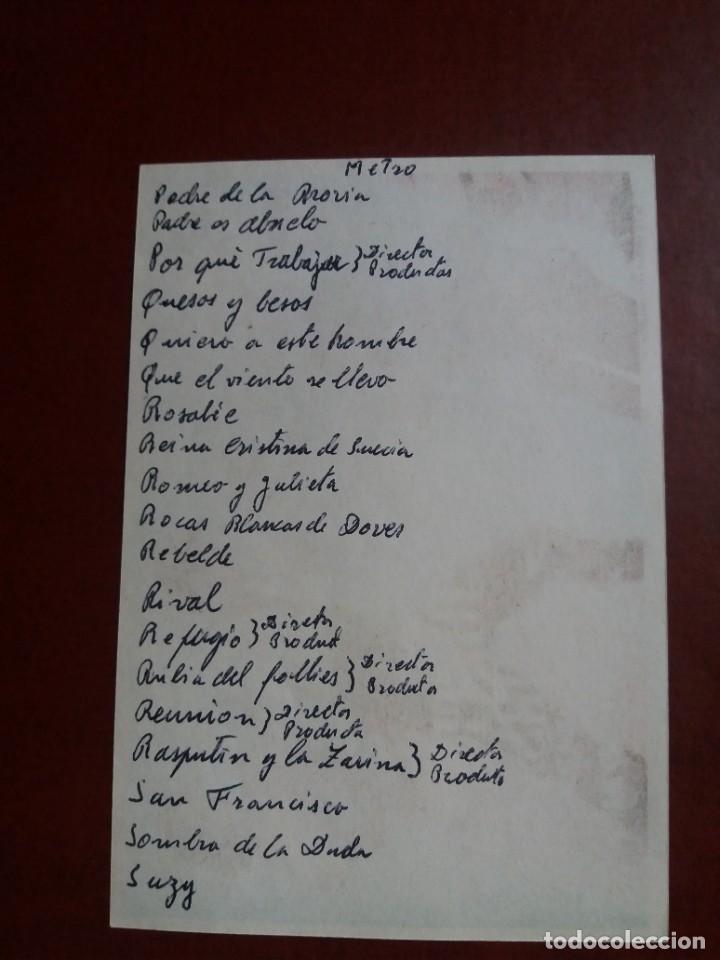 Metro
Padre de la Novia
Padre es abuelo
Por qué Trabajar } Director
Productor
Quesos y besos
Quiero a este hombre
Que el viento se llevo
Rosalie
Reina Cristina de Suecia
Romeo y Julieta
Rocas Blancas de Dover
Rebelde
Rival
Refugio } Director
Product
Rubia del follies } Director
Producto
Reunion } Director
Producto
Rasputin y la Zarina } Director
Producto
San Francisco
Sombra de la Duda
Suzy
todocoleccion